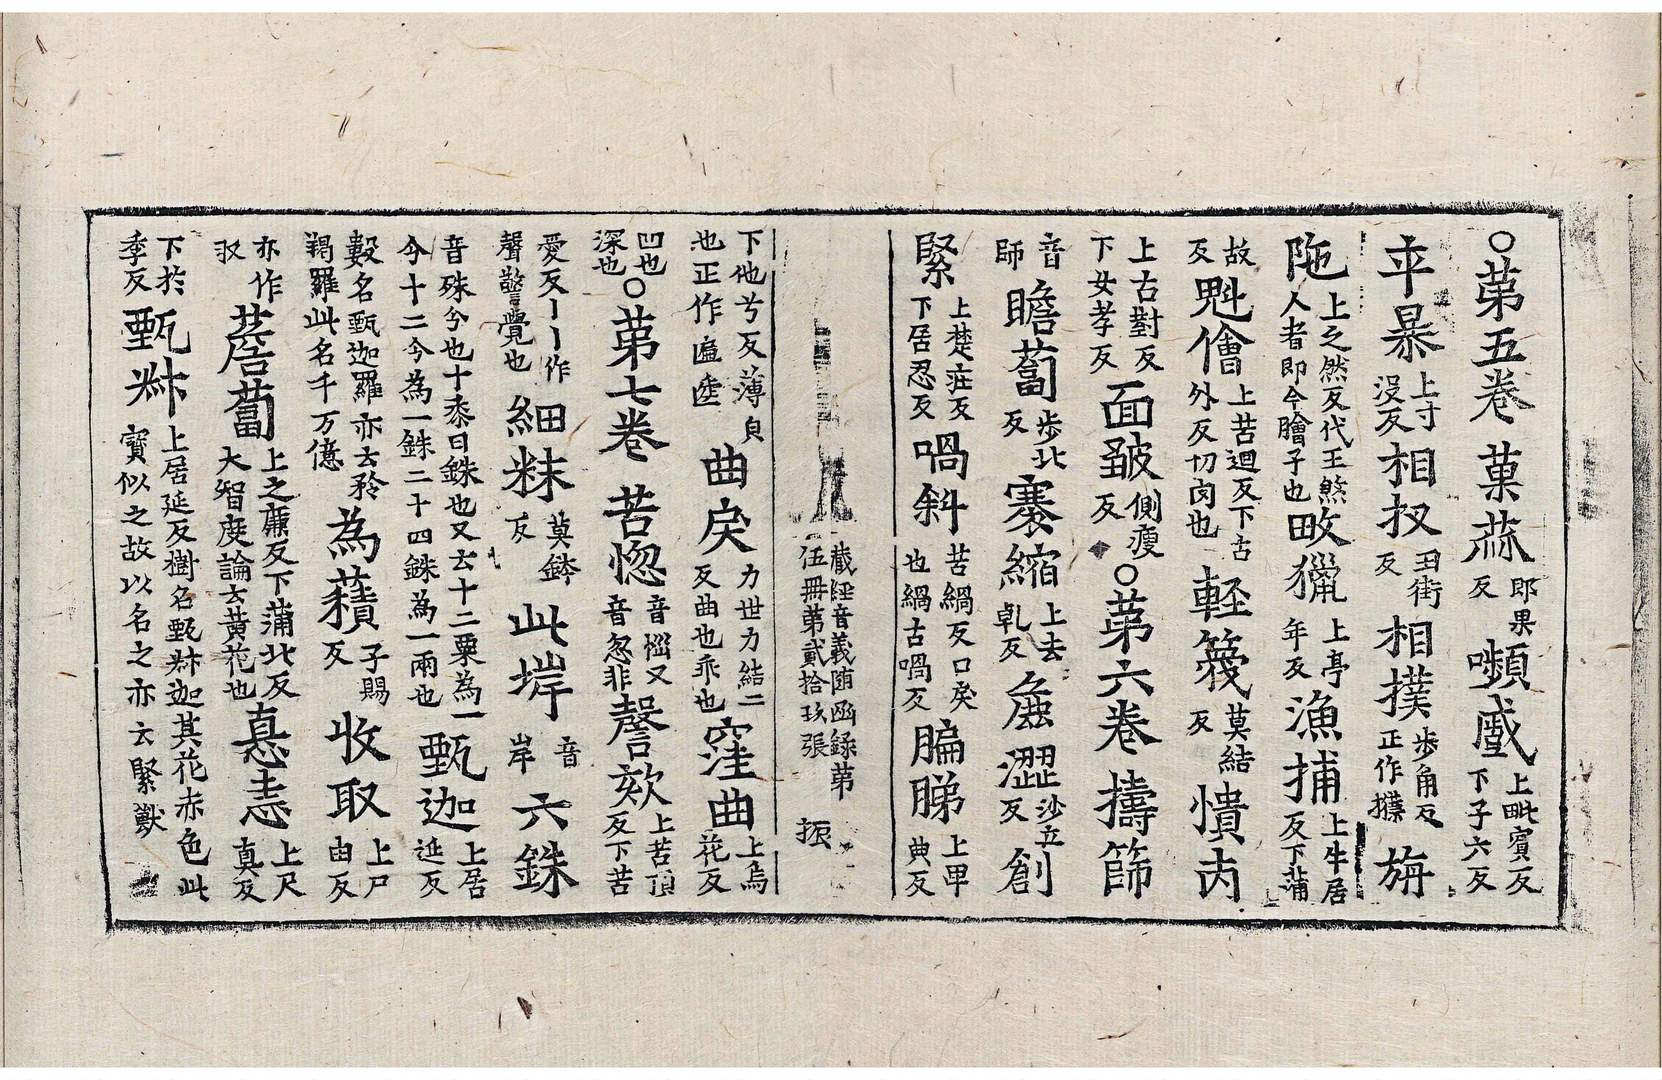 ○苐五卷菓蓏郎果反嚬蹙上毗賓反下子六反
卒暴上寸没反相扠丑街反相撲歩角反正作㩧旃
陁上之然反代王煞人者即今膾子也畋獵上亭年反漁捕上牛居反下蒲
故反魁儈上苦迴反下古外反切肉也軽篾莫結反憒丙
上古對反下女孝反面皺側瘦反○苐六卷擣篩
音師瞻蔔歩北反寋縮上去乹反麁澀沙立反創
緊上楚疘反下居忍反喎斜苦緺反口戾也緺古喎反騗䏲上畀典反
藏經音義随函録第
伍冊第貳拾玖張 振
下他兮反薄皃也正作匾㔸曲戾力世力結二反曲也乖也窪曲上烏花反
凹也深也○苐七卷苦惚音𢙉又音忽非謦欬上苦頂反下苦
愛反丨丨作聲警覺也細粖莫鉢反此垾音岸六銖
音殊兮也十黍曰銖也又云十二粟為一兮十二兮為一銖二十四銖為一兩也甄迦上居延反
數名甄迦羅亦云矜羯羅此名千万億為𧂐子賜反收取上尸由反
亦作㕛𦸅蔔上之廉反下蒲北反大智度論云黄花也恚恚上尺真反
下於季反甄𣗥上居延反樹名甄𣗥迦其花赤色此寳似之故以名之亦云緊獸